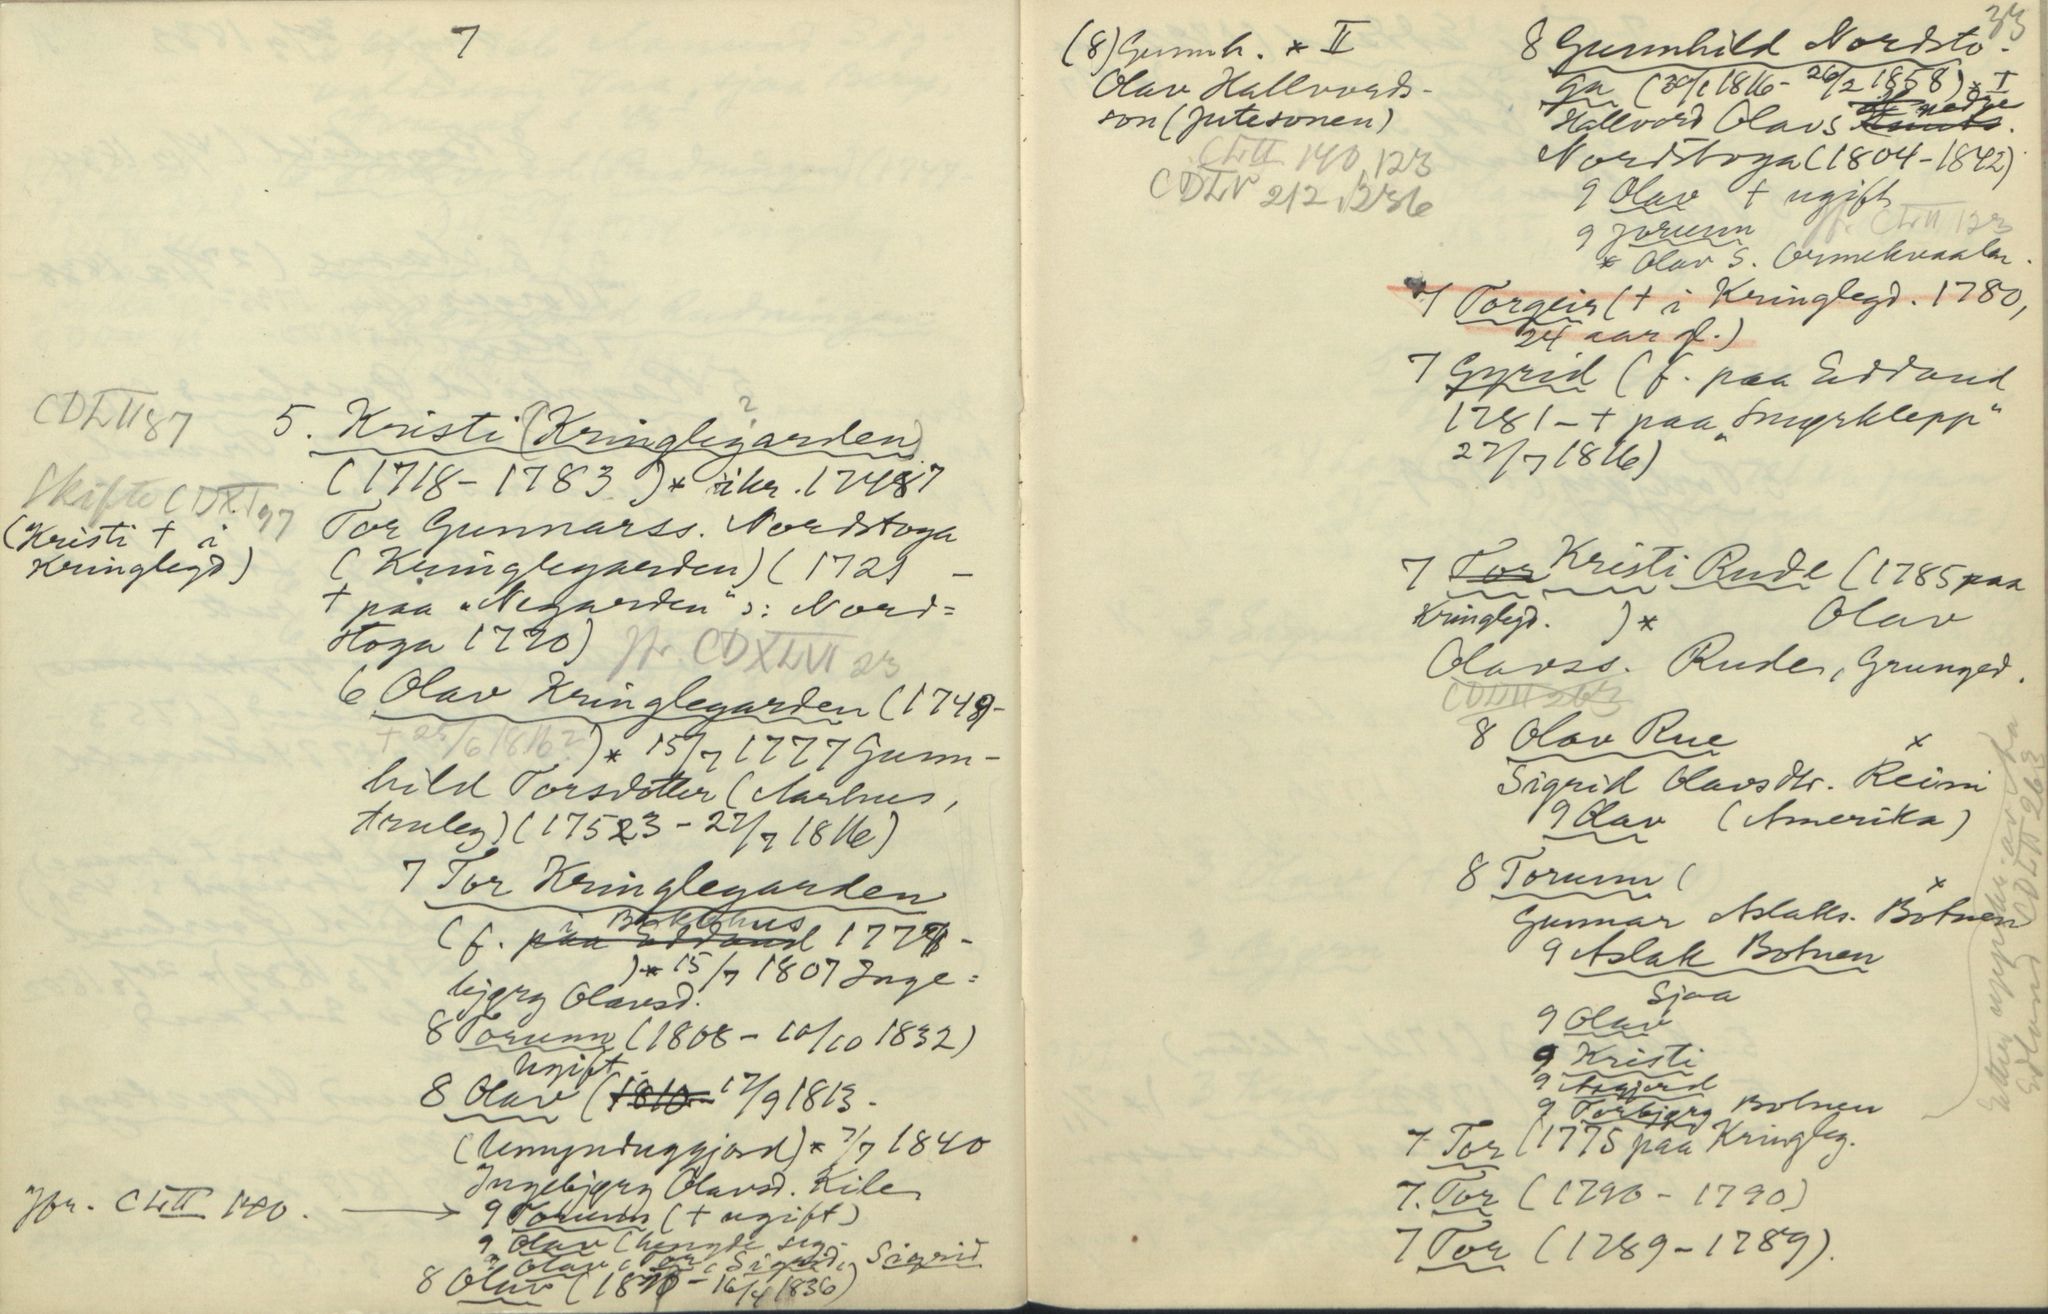 7
CDLII 87
5. Kristi (Kringlegarden)
(1718 - 1783) * ikr. 1747
Skifte CDXI 97
(Kristi + i
Kringlegd)
Tor Gunnarss. Nordstoga
(Kringlegarden) (1721 -
+ paa "Negarden" ɔ: Nord=
stoga 1790) Jfr. CDXLVI 23
6 Olav Kringlegarden (1749-
+ 25/6 1816?) * 15/7 1777 Gunn-
hild Torsdotter (Aarhus,
truleg) (1753 - 27/7 1816)
7 Tor Kringlegarden
i Bakkehus
(f. paa Edland 1778 -
) * 15/7 1807 Inge=
bjørg Olavsd.
8 Torunn (1808 - 10/10 1832)
Ugift.
8 Olav (1810 - 17/9 1813 -
(Umynduggjord) * 7/7 1840
Ingebjørg Olavsd. Kilen
Jfr. CLII 140. → 9 Torunn (+ ugift)
9 Olav (hengde seg.
9 Olav, Tor, Sigurd, Sigrid
8 Olav (1810 - 16/4 1836)
33
(8) Gunnh. * II
Olav Hallvords-
son (Jutesonen)
CLII 140, 123
CDLV 212, 236
8 Gunnhild Nordsto-
ga (30/1 1816 - 26/2 1858) * I
Hallvord Olavs nedre
Nordstoga (1804 - 1842)
9 Olav + ugift
9 Jorunn Jfr. CLII 123
* Olav S. Ormekvaalen.
7 Torgeir (+ i Kringlegd. 1780,
24 aar gl.)
7 Gyrid (f. paa Edland
1781 - + paa "Smørklepp"
27/7 1816)
7 Tor Kristi Rude (1785 paa
Kringlegd. ) * Olav
Olavss. Rude, Grunged.
CDLII 263
8 Olav Rue *
Sigrid Olavsdtr. Reimi
9 Olav (Amerika)
8 Torunn ( *
Gunnar Aslaks. Botnen
9 Aslak Botnen
Sjaa
9 Olav
9 Kristi
9 Asgjerd
9 Torbjørg Botnen
7 Tor (1775 paa Kringleg.
7. Tor (1790 - 1790)
7 Tor (1789 - 1789).
Edland CDLII 263